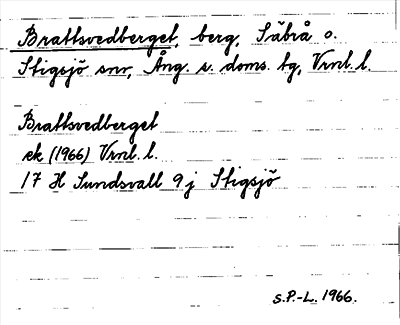 Brattsvedberget, berg, Säbrå o.
Stigsjö snr, Ång. s. doms. tg, Vrnl. l.
Brattsvedberget
ek (1966) Vrnl. l.
17 H Sundsvall 9 j Stigsjö
S.P.-L. 1966.